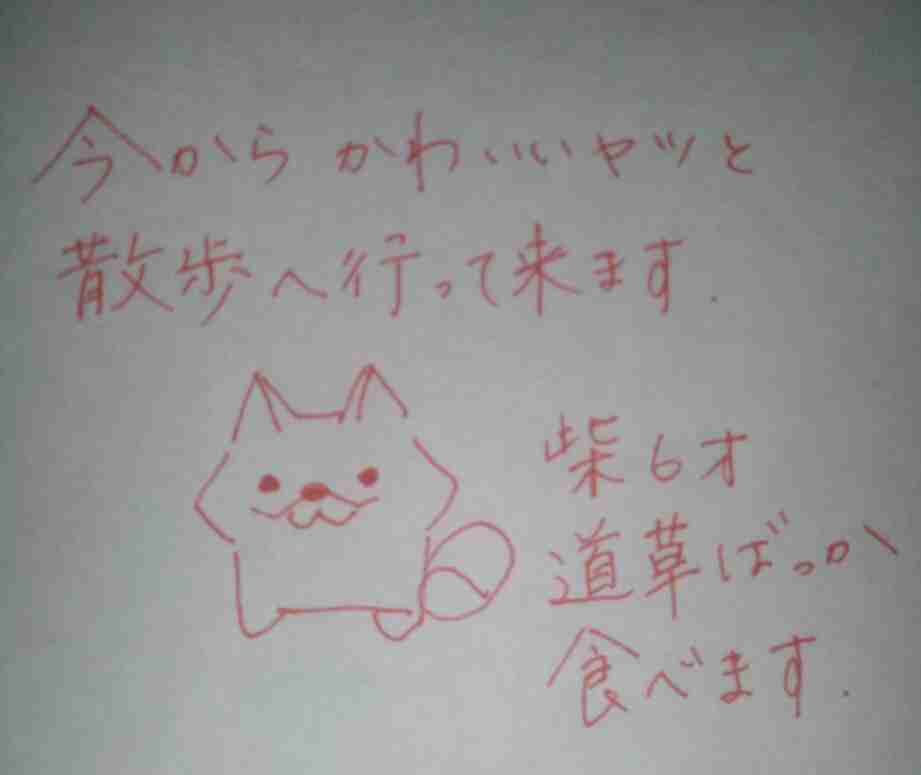 今からかわいいヤツと
散歩へ行って来ます.
柴6才
道草ばっか
食べます.